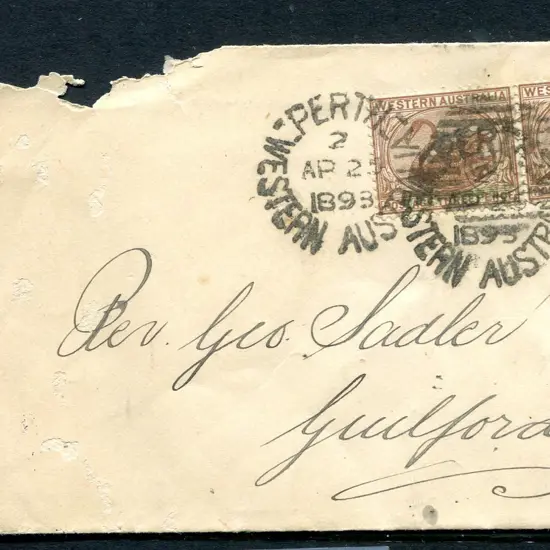 PERTH
2
AP 2
1893
WESTERN AUS
WESTERN AUSTRALIA
WES
1893
STERN AUSTR
Rev. Geo. Sadler
Guilford